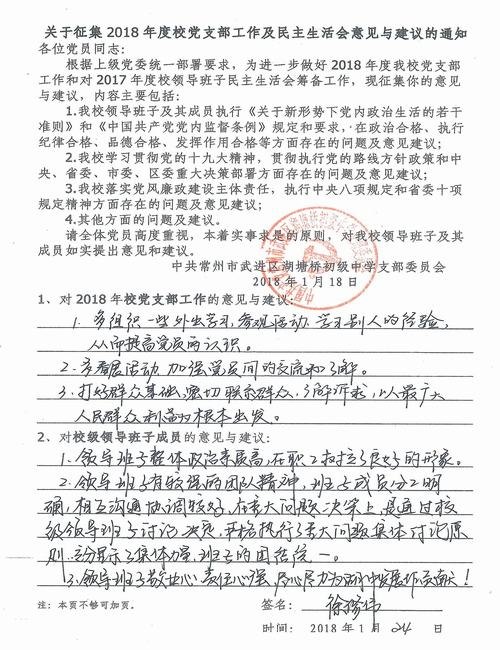 关于征集 2018 年度校党支部工作及民主生活会意见与建议的通知
各位党员同志：
根据上级党委统一部署要求，为进一步做好 2018 年度我校党支部
工作和对 2017 年度校领导班子民主生活会筹备工作，现征集你的意见
与建议，内容主要包括：
1.我校领导班子及其成员执行《关于新形势下党内政治生活的若干
准则》和《中国共产党党内监督条例》规定和要求，在政治合格、执行
纪律合格、品德合格、发挥作用合格等方面存在的问题及意见建议；
2.我校学习贯彻党的十九大精神，贯彻执行党的路线方针政策和中
央、省委、市委、区委重大决策部署方面存在的问题及意见建议；
3.我校落实党风廉政建设主体责任，执行中央八项规定和省委十项
规定精神方面存在的问题及意见建议。
4.其他方面的问题及建议。
请全体党员高度重视，本着实事求是的原则，对我校领导班子及其
成员如实提出意见和建议。
中共常州市武进区湖塘桥初级中学支部委员会
2018 年 1 月 18 日
1、对 2018 年校党支部工作的意见与建议：
1. 多组织一些外出学习，参观活动，学习别人的经验，
从而提高党员的认识。
2. 多开展活动，加强党员间的交流和了解。
3. 打好群众基础，密切联系群众，了解诉求，以最广大
人民群众利益为根本出发。
2、对校级领导班子成员的意见与建议：
1. 领导班子整体政治素质高，在职工中树立了良好的形象。
2. 领导班子有较强的团队精神，班子成员分工明
确，相互沟通协调较好，在重大问题决策上，是通过校
级领导班子讨论决定，严格执行了重大问题集体讨论原
则，充分显示了集体力量，班子的团结统一。
3. 领导班子敬业心、责任心强，尽心尽力为湖中发展作贡献！
注：本页不够可加页。
签名：
时间： 2018 年 1 月 24 日